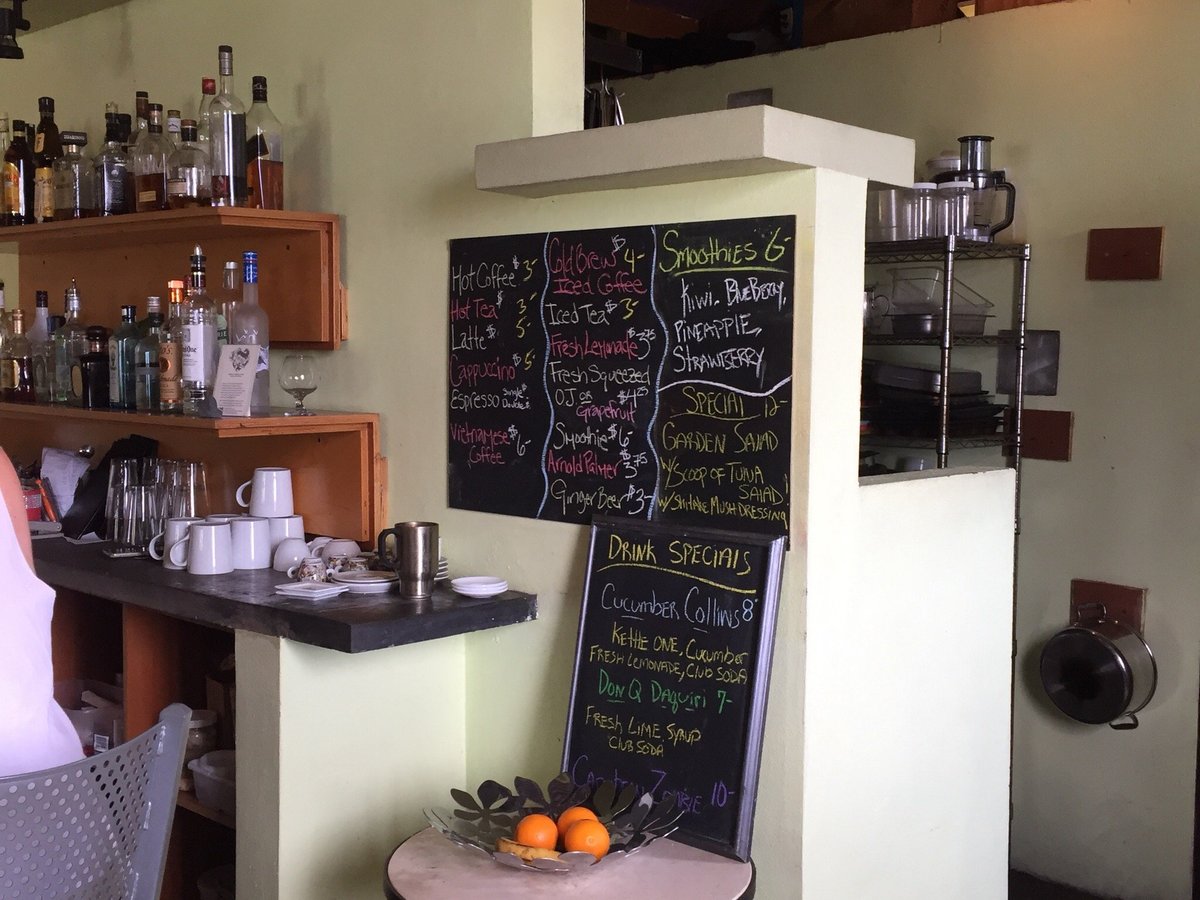 Hot Coffee $3-
Hot Tea $3-
Latte $5-
Cappuccino $5-
Espresso Single Double
Vietnamese $6-
Coffee
Cold Brew $4-
Iced Coffee
Iced Tea $3-
Fresh Lemonade $3.75
Fresh Squeezed
OJ or $4.25
Grapefruit
Smoothie $6-
Arnold Palmer $3.75
Ginger Beer $3-
Smoothies 6-
Kiwi, BlueBerry,
Pineapple,
Strawberry
Special 12-
Garden Salad
w/ Scoop of Tuna
Salad!
w/ Shitake Mush Dressing
Drink Specials
Cucumber Collins 8-
Kettle One, Cucumber
Fresh Lemonade, Club Soda
Don Q Daquiri 7-
Fresh Lime, Syrup
Club Soda
Zombie 10-